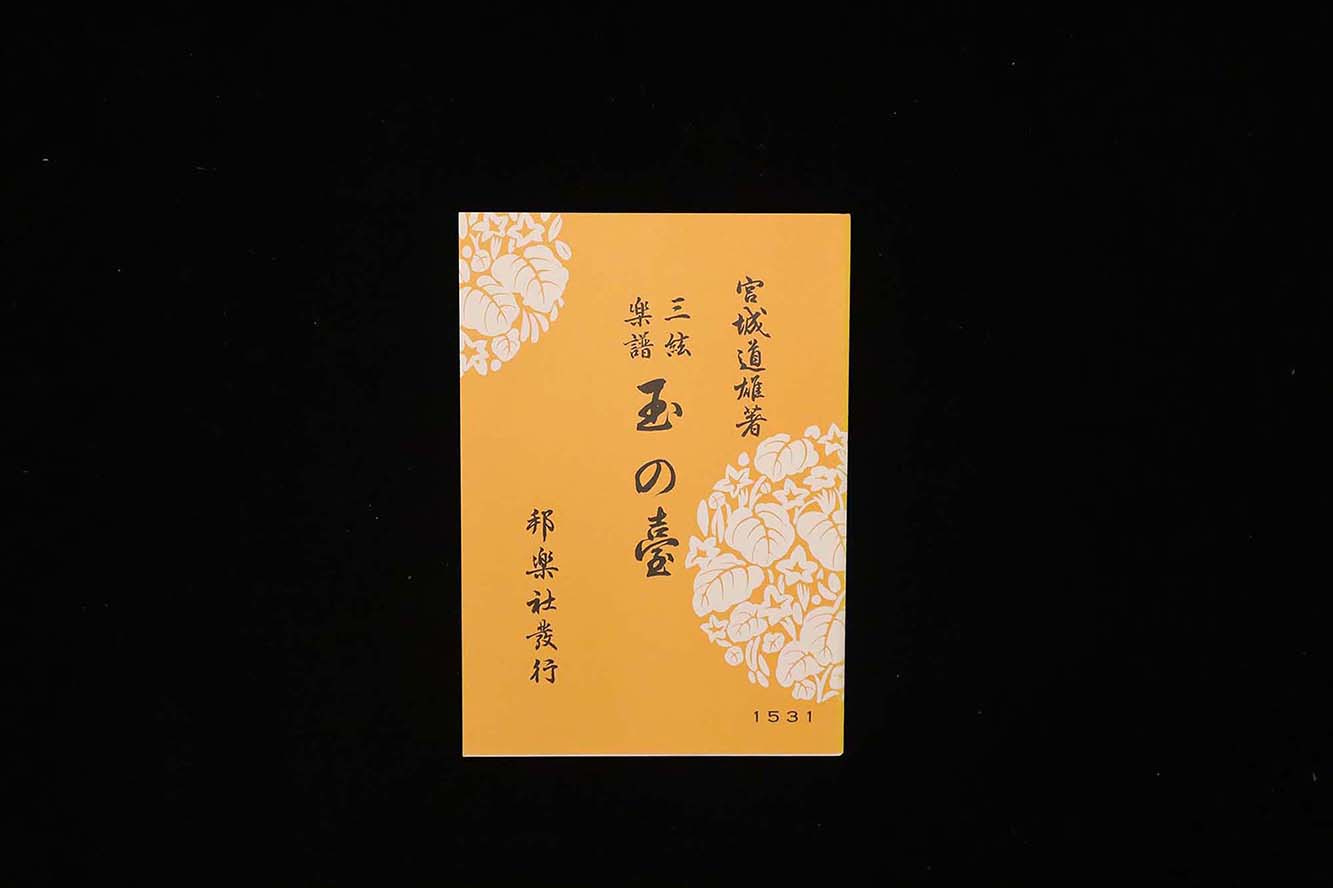 宮城道雄著
三絃
楽譜
玉の臺
邦楽社發行
1531